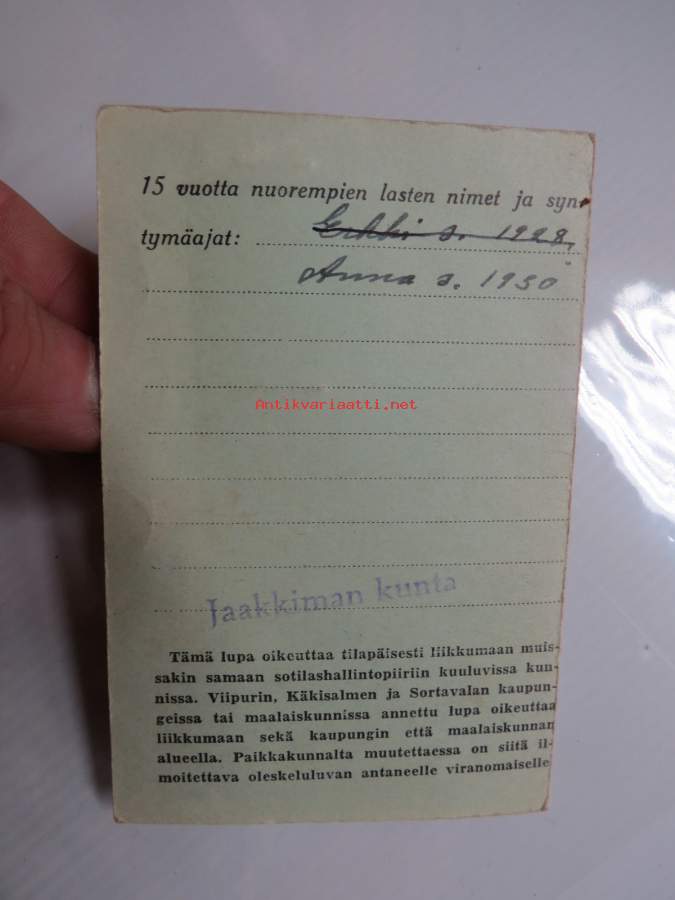 15 vuotta nuorempien lasten nimet ja syn-
tymäajat: Erkki s. 1928,
Anna s. 1930
Antikvariaatti.net
Jaakkiman kunta
Tämä lupa oikeuttaa tilapäisesti liikkumaan muis-
sakin samaan sotilashallintopiiriin kuuluvissa kun-
nissa. Viipurin, Käkisalmen ja Sortavalan kaupun-
geissa tai maalaiskunnissa annettu lupa oikeuttaa
liikkumaan sekä kaupungin että maalaiskunnan
alueella. Paikkakunnalta muutettaessa on siitä il-
moitettava oleskeluluvan antaneelle viranomaiselle